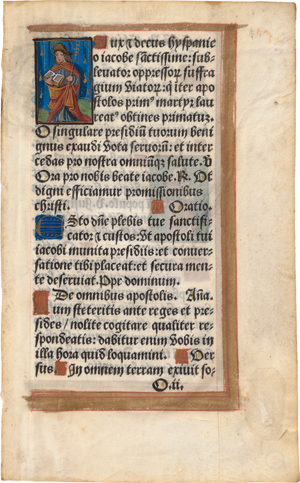 ux ⁊ decus hyspanie
o iacobe sāctissime: sub-
leuator oppressoꝝ suffra
gium viatoꝝ: q̇ iter apo
stolos primꝰ martyr lau
reatꝰ obtines primatuꝫ.
O singulare presidiū tuorum beni
gnius exaudi vota seruoꝝ: et inter
cedas pro nostra omniūqꝫ salute. V
Ora pro nobis beate iacobe. R. Vt
digni efficiamur promissionibus
christi. Oratio.
Esto dn̄e plebis tue sanctifi-
cator ⁊ custos: vt apostoli tui
iacobi munita presidiis: et conuer-
satione tibi placeat: et secura men-
te deseruiat. Per dominum.
De omnibus apostolis. Añ.
um steteritis ante reges et pre-
sides / nolite cogitare qualiter re-
spondeatis: dabitur enim vobis in
illa hora quid loquamini. Ver
sus In omnem terram exiuit so-
O.ii.